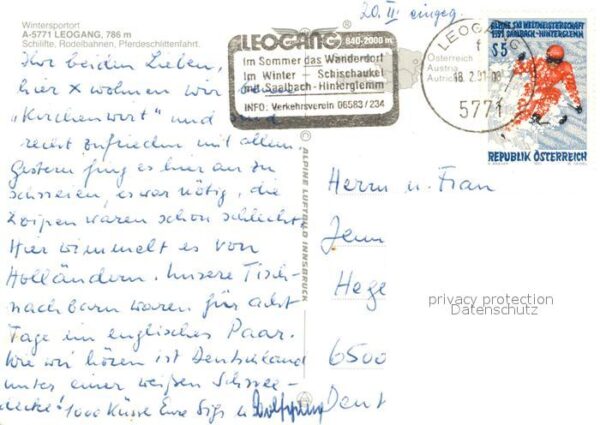 20. III eingeg.
Wintersportort
A-5771 LEOGANG, 786 m
Schilifte, Rodelbahnen, Pferdeschlittenfahrt.
LEOGANG 840-2000 m
Im Sommer das Wanderdorf
Im Winter - Schischaukel
mit Saalbach-Hinterglemm
INFO: Verkehrsverein 06583/234
LEOGANG
18. 2. 91
5771
Österreich
Austria
Autric
ALPINE SKI WELTMEISTERSCHAFT
1991 SAALBACH-HINTERGLEMM
S5
REPUBLIK ÖSTERREICH
Ihr beiden Lieben,
hier x wohnen wir beim
"Kirchenwirt" und sind
recht zufrieden mit allem.
Gestern fing es hier an zu
schneien, es war nötig, die
Loipen waren schon schlecht.
Hier wimmelt es von
Holländern. Unsere Tisch-
nachbarn waren für acht
Tage ein englisches Paar.
Wie wir hören ist Deutschland
unter einer weißen Schnee-
decke! 1000 Küsse Eure Sigs u Wolfgang
ALPINE LUFTBILD INNSBRUCK
Herrn u. Frau
Jenn
Hege
6500
Deut
privacy protection
Datenschutz